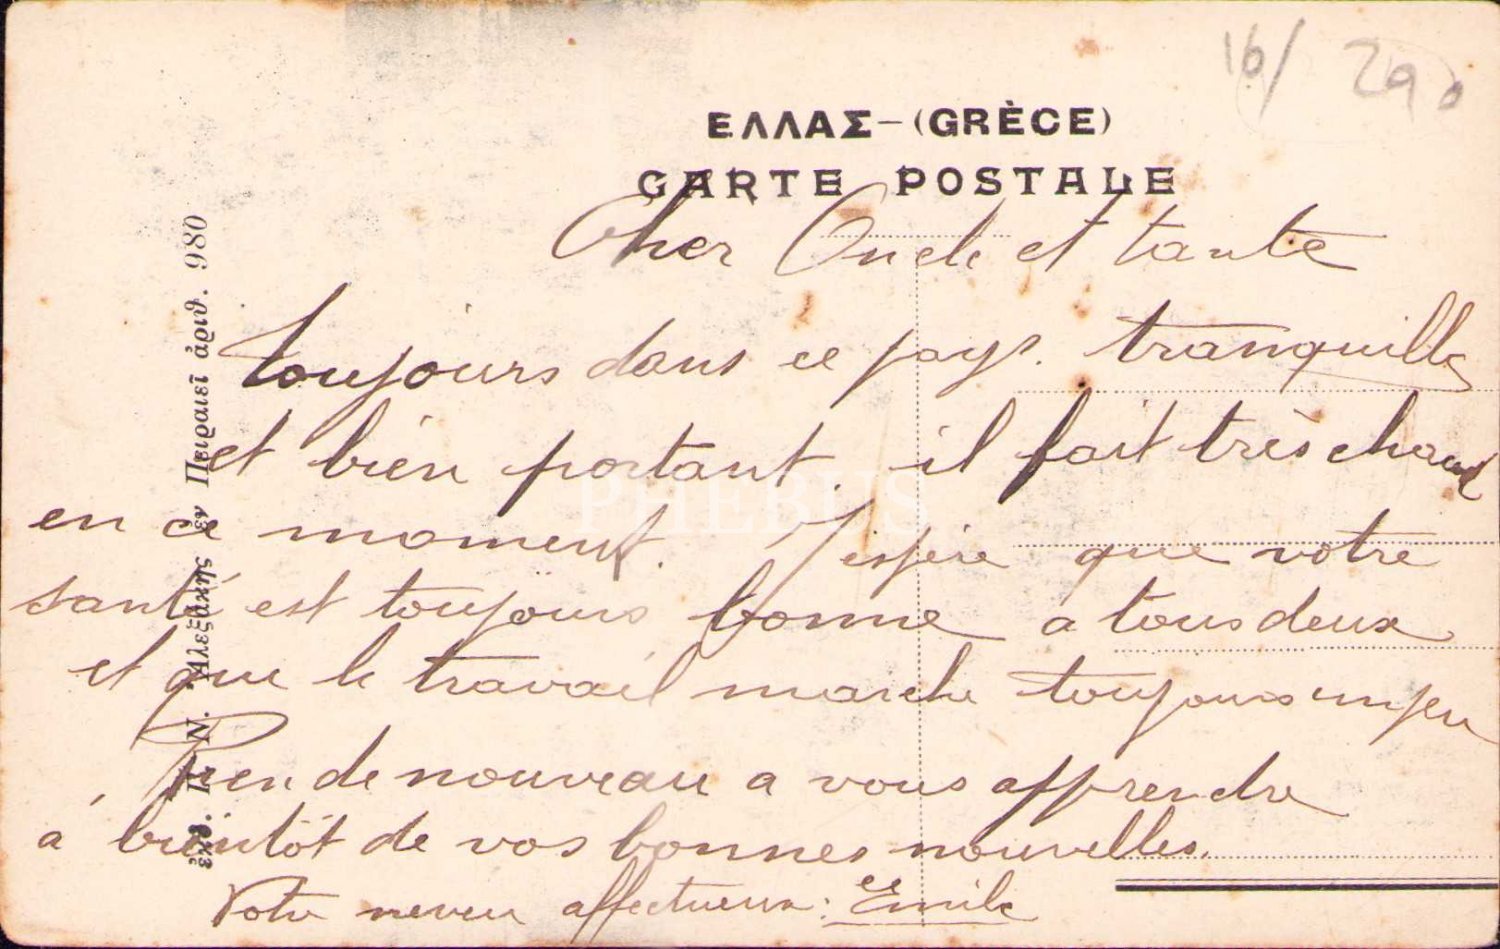 16/ 290
ΕΛΛΑΣ-(GRÈCE)
CARTE POSTALE
Cher Oncle et tante
Toujours dans ce pays. tranquille
et bien portant. il fait très chaud
en ce moment. J'espère que votre
santé est toujours bonne a tous deux
et que le travail marche toujours un peu
Rien de nouveau a vous apprendre
à bientôt de vos bonnes nouvelles.
Votre neveu affectueux: Emile
Ἀλεξάκης ἐν Πειραιεῖ ἀριθ. 980
PHEBUS